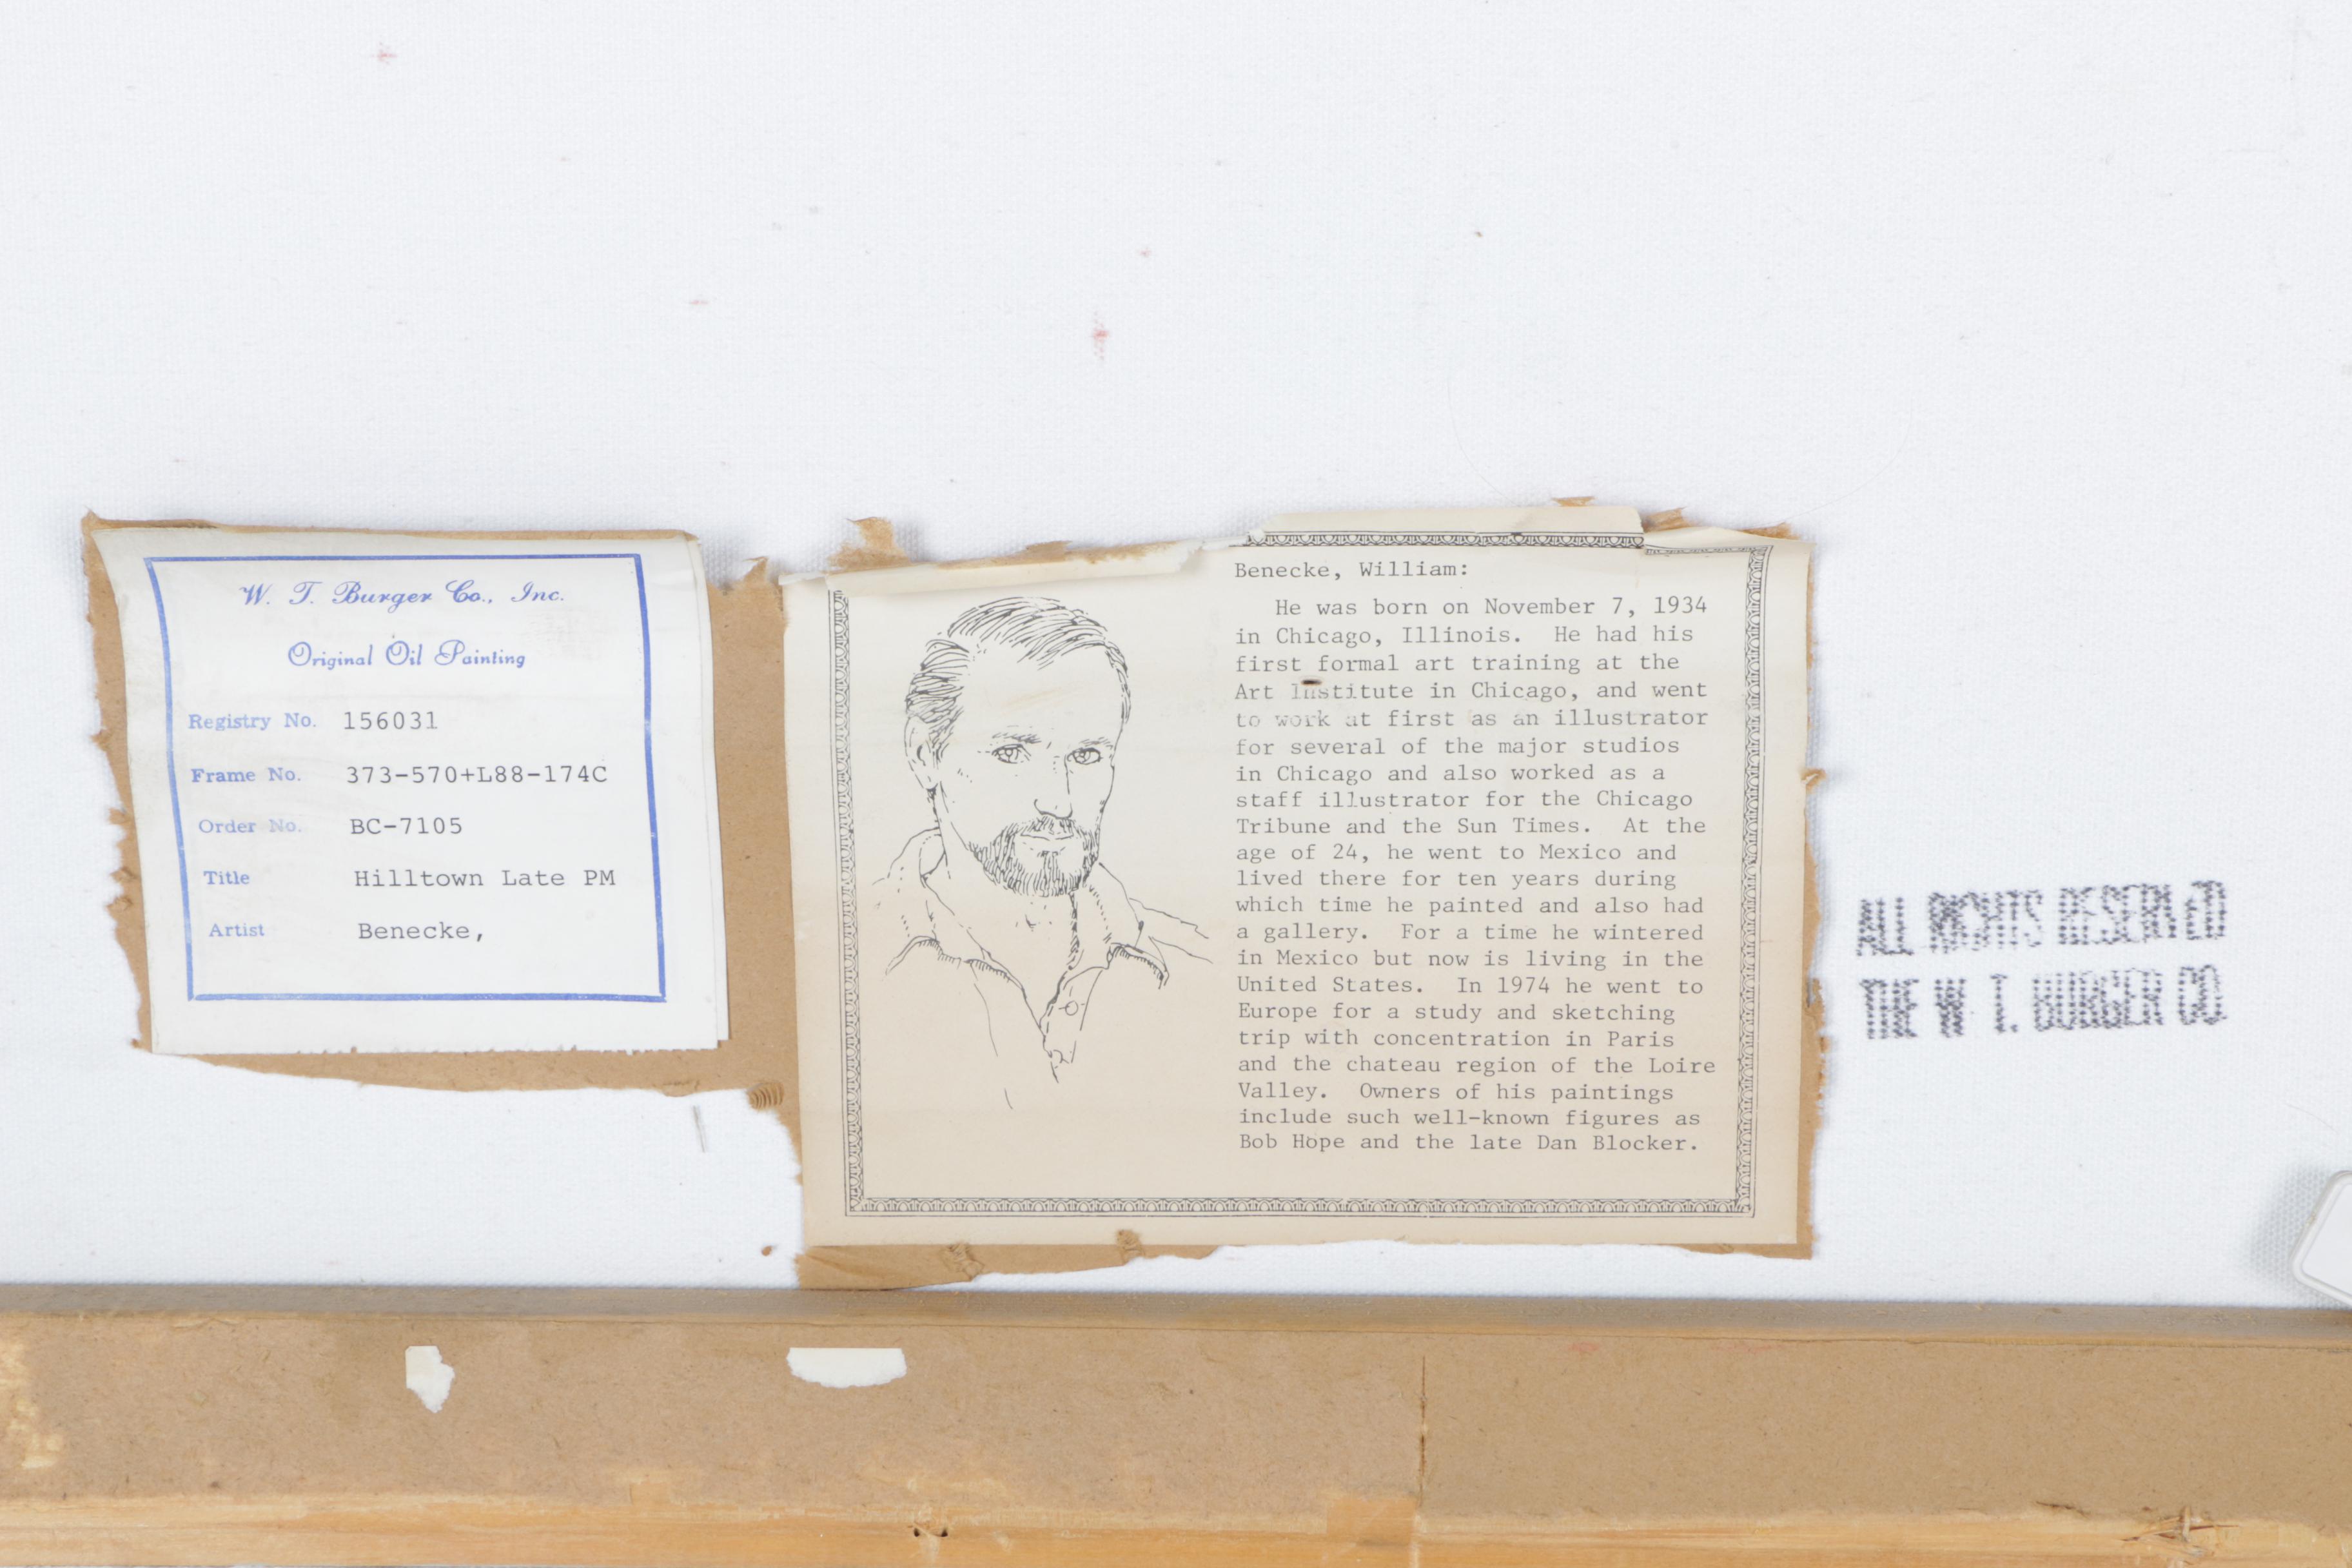 W. T. Burger Co., Inc.
Original Oil Painting
Registry No. 156031
Frame No. 373-570+L88-174C
Order No. BC-7105
Title Hilltown Late PM
Artist Benecke,
Benecke, William:
He was born on November 7, 1934
in Chicago, Illinois. He had his
first formal art training at the
Art Institute in Chicago, and went
to work at first as an illustrator
for several of the major studios
in Chicago and also worked as a
staff illustrator for the Chicago
Tribune and the Sun Times. At the
age of 24, he went to Mexico and
lived there for ten years during
which time he painted and also had
a gallery. For a time he wintered
in Mexico but now is living in the
United States. In 1974 he went to
Europe for a study and sketching
trip with concentration in Paris
and the chateau region of the Loire
Valley. Owners of his paintings
include such well-known figures as
Bob Hope and the late Dan Blocker.
ALL RIGHTS RESERVED
THE W T. BURGER CO